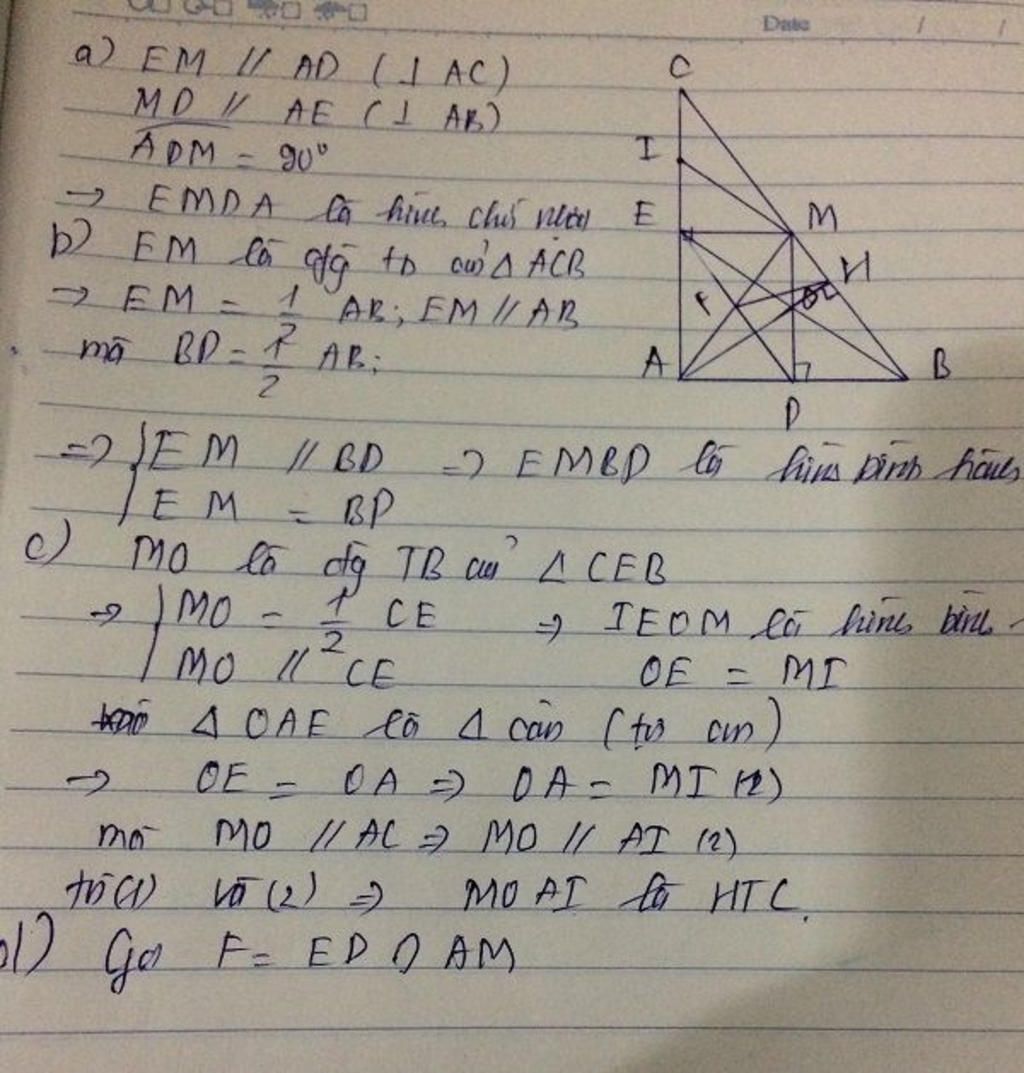 Date / /
a) EM // AD ( ⊥ AC)
MD // AE ( ⊥ AB)
ADM = 90°
→ EMDA là hình chữ nhật
b) EM là đg tb của Δ ACB
→ EM = 1/2 AB; EM // AB
mà BD = 1/2 AB;
=> { EM // BD => EMBD là hình bình hành
EM = BD
c) MO là đg TB của Δ CEB
→ { MO = 1/2 CE => IEOM là hình bình
MO // CE OE = MI
Δ OAE là Δ cân
→ OE = OA => OA = MI (1)
mà MO // AC => MO // AI (2)
từ (1) và (2) => MOAI là HTC.
d) Gọi F = ED ∩ AM
C
I
E M
H
F O
A B
D